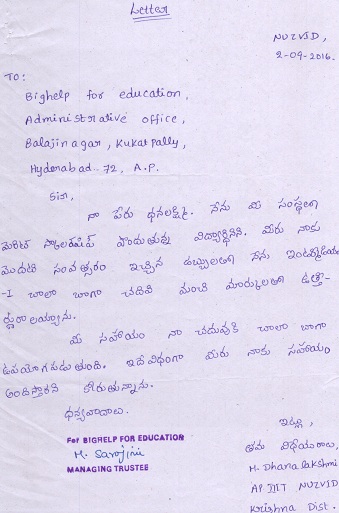 Letter
NUZVID,
2-09-2016.
To:
Bighelp for education,
Administrative office,
Balajinagar, Kukatpally,
Hyderabad-72, A.P.
Sir,
నా పేరు ధనలక్ష్మి. నేను మీ సంస్థలో
మెరిట్ స్కాలర్‌షిప్ పొందుతున్న విద్యార్థినిని. మీరు నాకు
మొదటి సంవత్సరం ఇచ్చిన డబ్బులతో నేను
-I చాలా బాగా చదివి మంచి మార్కులతో ఉత్తీ-
ర్ణురాలయ్యాను.
మీ సహాయం నా చదువుకి చాలా బాగా
ఉపయోగపడుతుంది. ఇదేవిధంగా మీరు నాకు సహాయం
అందిస్తారని కోరుతున్నాను.
ధన్యవాదాలు.
For BIGHELP FOR EDUCATION
M. Sarojini
MANAGING TRUSTEE
ఇట్లు,
తమ విధేయురాలు,
M. Dhana lakshmi
AP IIIT NUZVID
Krishna Dist.